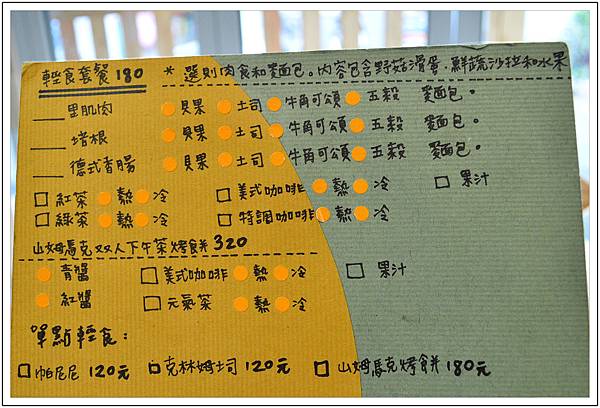 輕食套餐 180 * 選則肉食和麵包。內容包含野菇滑蛋．鮮蔬沙拉和水果
里肌肉 貝果 土司 牛角可頌 五穀 麵包。
培根 貝果 土司 牛角可頌 五穀 麵包。
德式香腸 貝果 土司 牛角可頌 五穀 麵包。
紅茶 熱 冷 美式咖啡 熱 冷 果汁
綠茶 熱 冷 特調咖啡 熱 冷
山姆馬克双人下午茶烤餅 320
青醬 美式咖啡 熱 冷 果汁
紅醬 元氣茶 熱 冷
單點輕食：
帕尼尼 120元 克林姆土司 120元 山姆馬克烤餅 180元